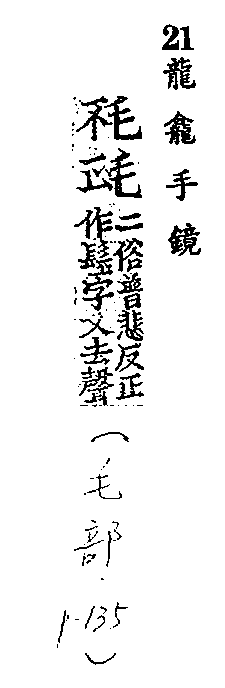 21 龍龕手鏡
二俗普悲反正
作髬字又去聲
(毛部. p-135)